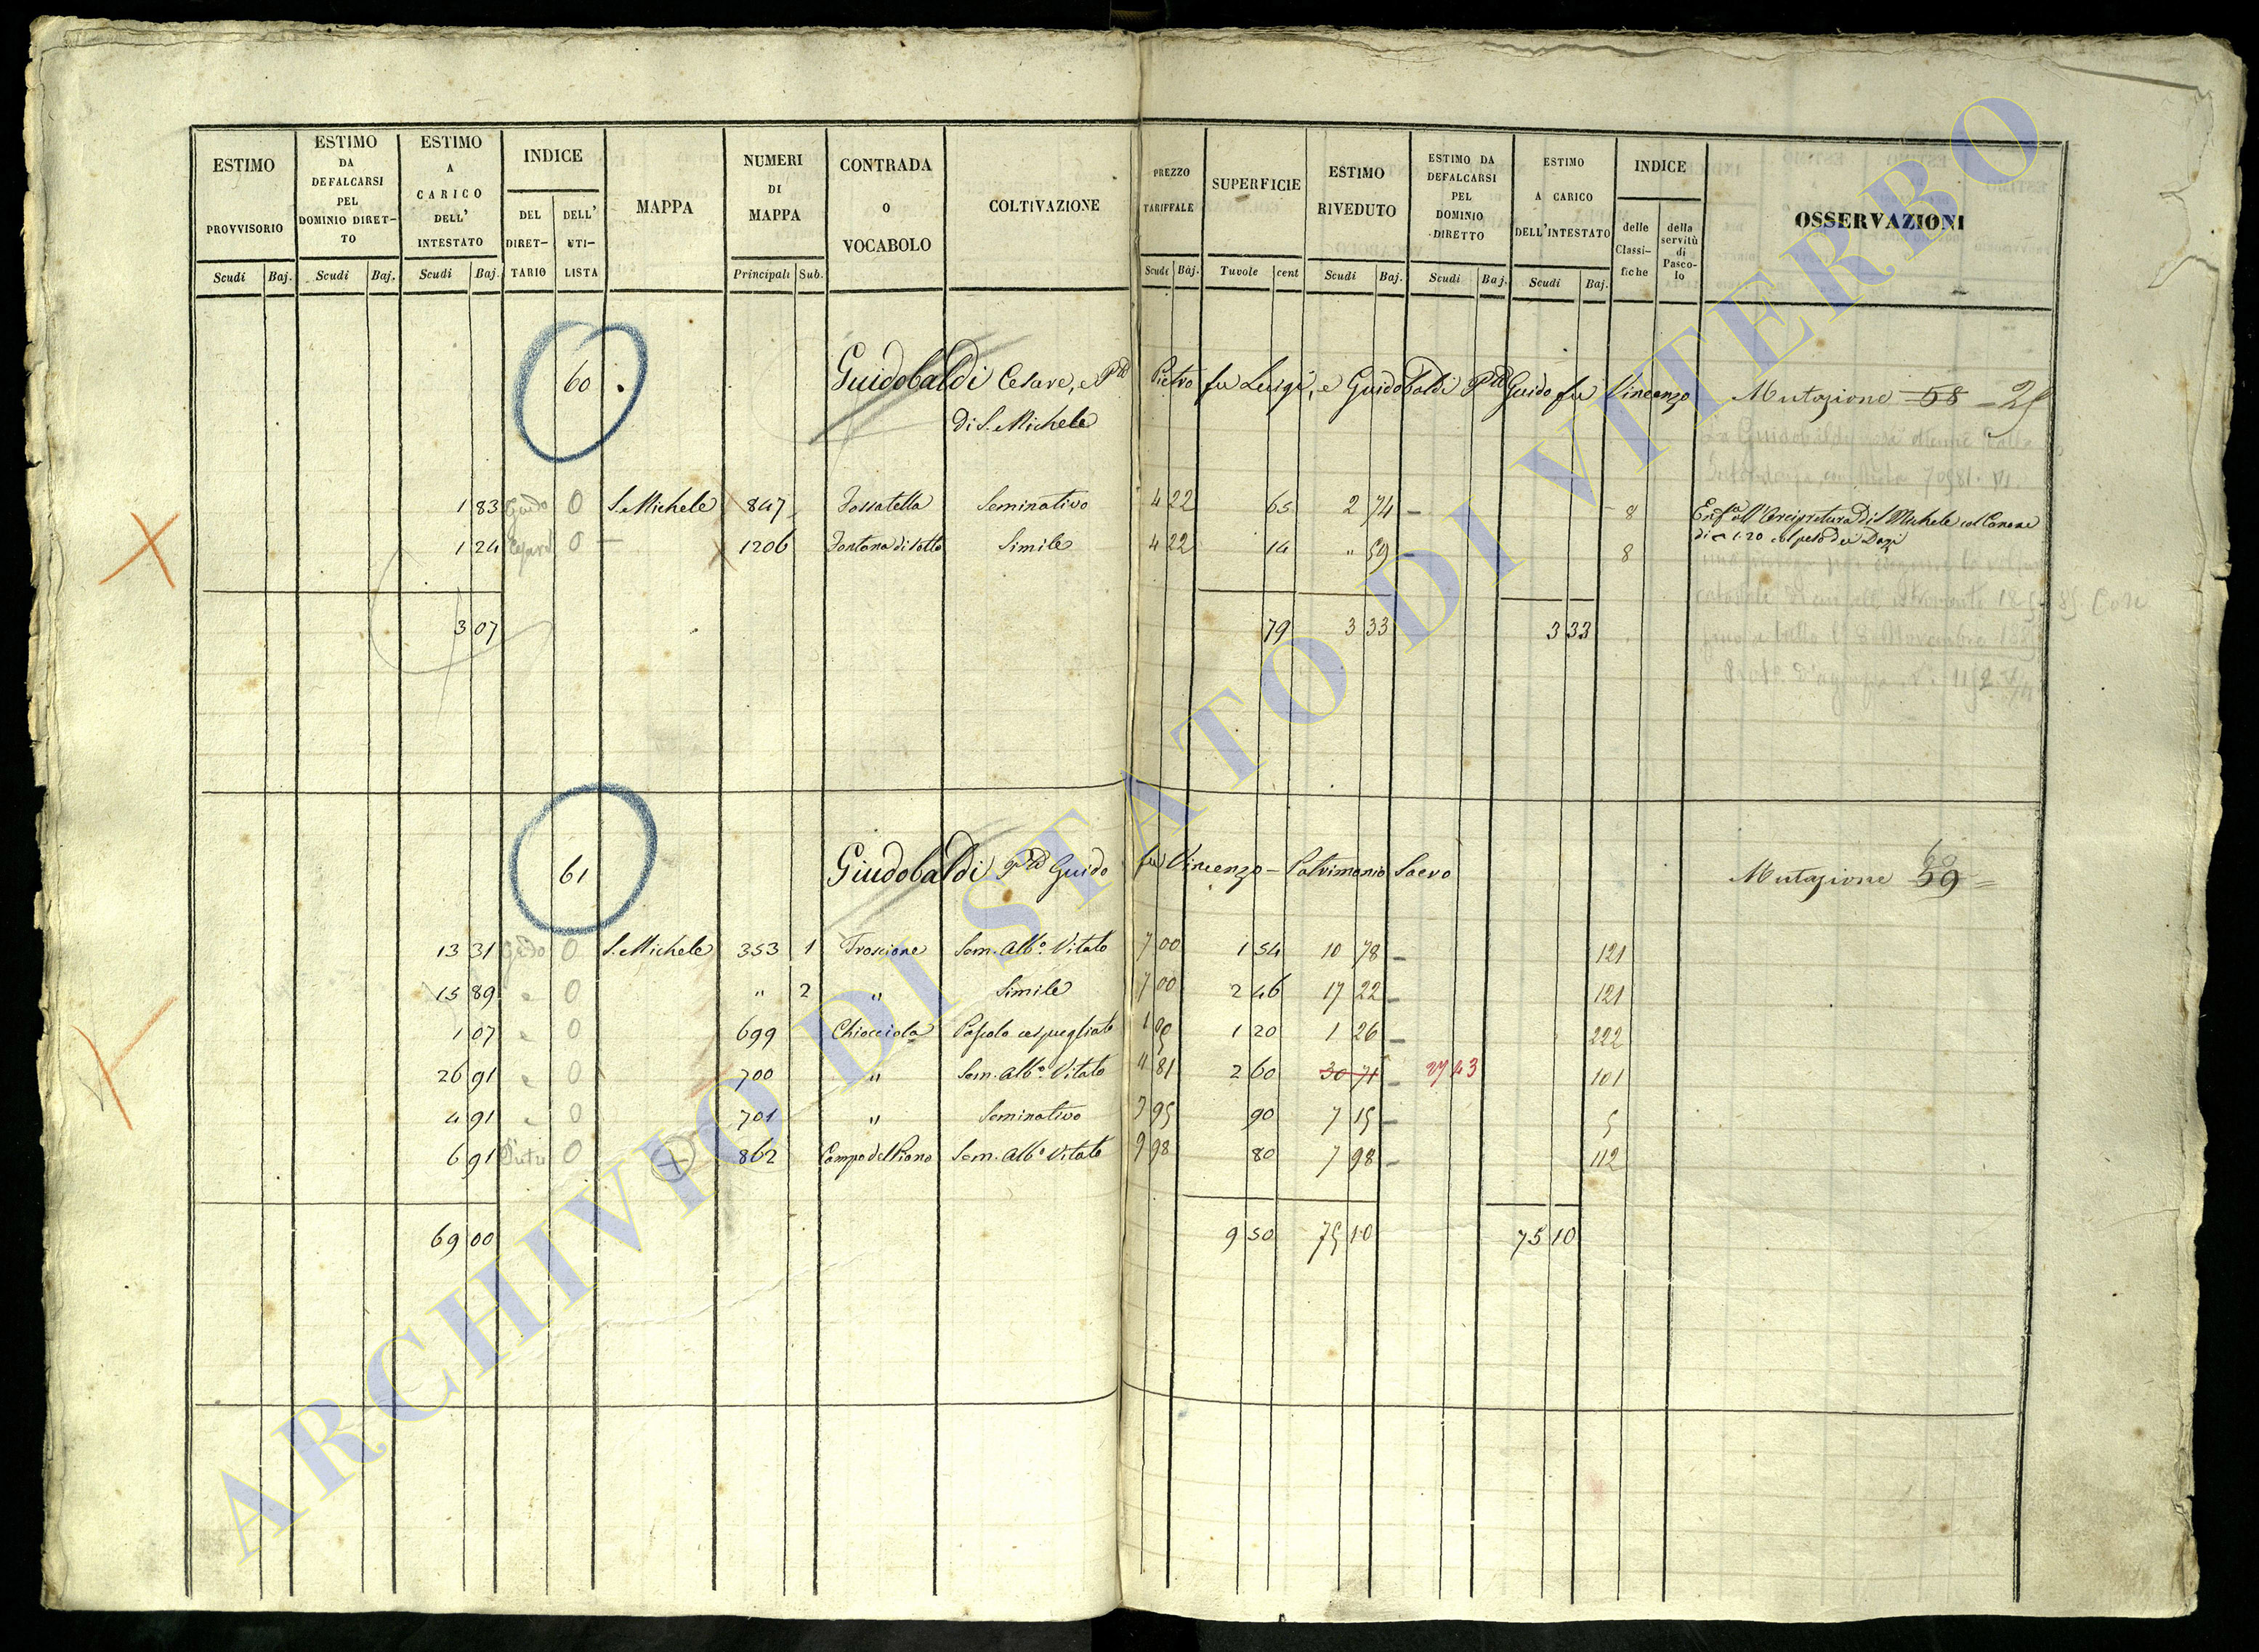 ESTIMO PROVVISORIO Scudi Baj.
ESTIMO DA DEFALCARSI PEL DOMINIO DIRET-TO Scudi Baj.
ESTIMO A CARICO DELL' INTESTATO Scudi Baj.
INDICE DEL DIRET-TARIO DELL' UTI-LISTA
MAPPA
NUMERI DI MAPPA Principali Sub.
CONTRADA O VOCABOLO
COLTIVAZIONE
PREZZO TARIFFALE Scudi Baj.
SUPERFICIE Tavole cent
ESTIMO RIVEDUTO Scudi Baj.
ESTIMO DA DEFALCARSI PEL DOMINIO DIRETTO Scudi Baj.
ESTIMO A CARICO DELL'INTESTATO Scudi Baj.
INDICE delle Classi-fiche della servitù di Pasco-lo
OSSERVAZIONI
60 Guidobaldi Cesare, e Pietro fu Luigi, e Guidobaldi Guido fu Vincenzo Mutazione 58
di S. Michele
1 83 Guido 0 S. Michele 847 Fossatella Seminativo 4 22 65 2 74 8
1 24 Cesare 0 1206 Fontana di sotto Simile 4 22 14 " 59 8
3 07 79 3 33 3 33
61 Giudobaldi Guido fu Vincenzo - Patrimonio Sacro Mutazione 59
13 31 0 S. Michele 353 1 Troscione Sem. Alb.o Vitato 7 00 1 54 10 78 121
15 89 0 " 2 " Simile 7 00 2 46 17 22 121
1 07 0 699 Chiocciola Pascolo cespugliato 1 05 1 20 1 26 222
26 91 0 700 " Sem. Alb.o Vitato 11 81 2 60 30 71 27 43 101
4 91 0 701 " Seminativo 7 95 90 7 15 5
6 91 0 862 Campo del Piano Sem. Alb.o Vitato 9 98 80 7 98 112
69 00 9 50 75 10 75 10
ARCHIVIO DI STATO DI VITERBO